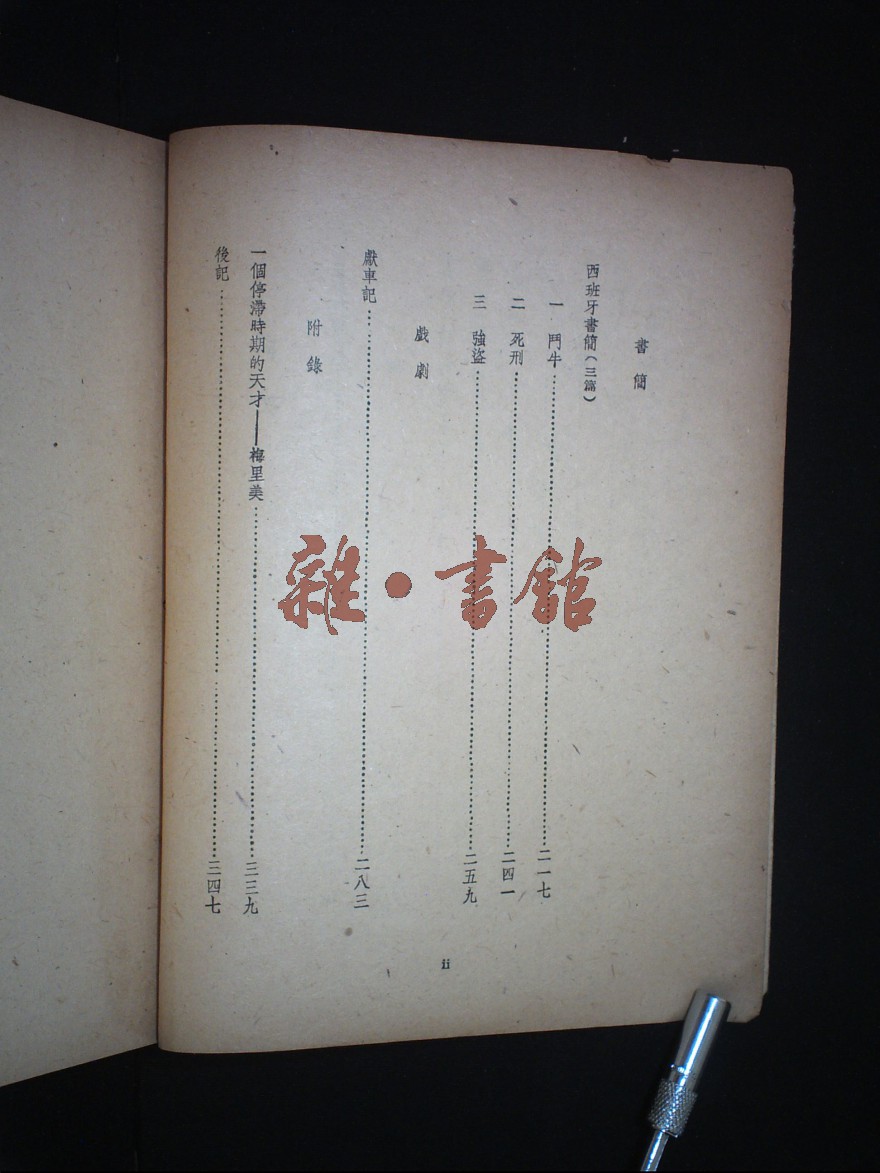 書簡
西班牙書簡(三篇)
一 鬥牛……二一七
二 死刑……二四一
三 強盜……二五九
戲劇
獻車記……二八三
附錄
一個停滯時期的天才——梅里美……三三九
後記……三四七
ii
雜•書館